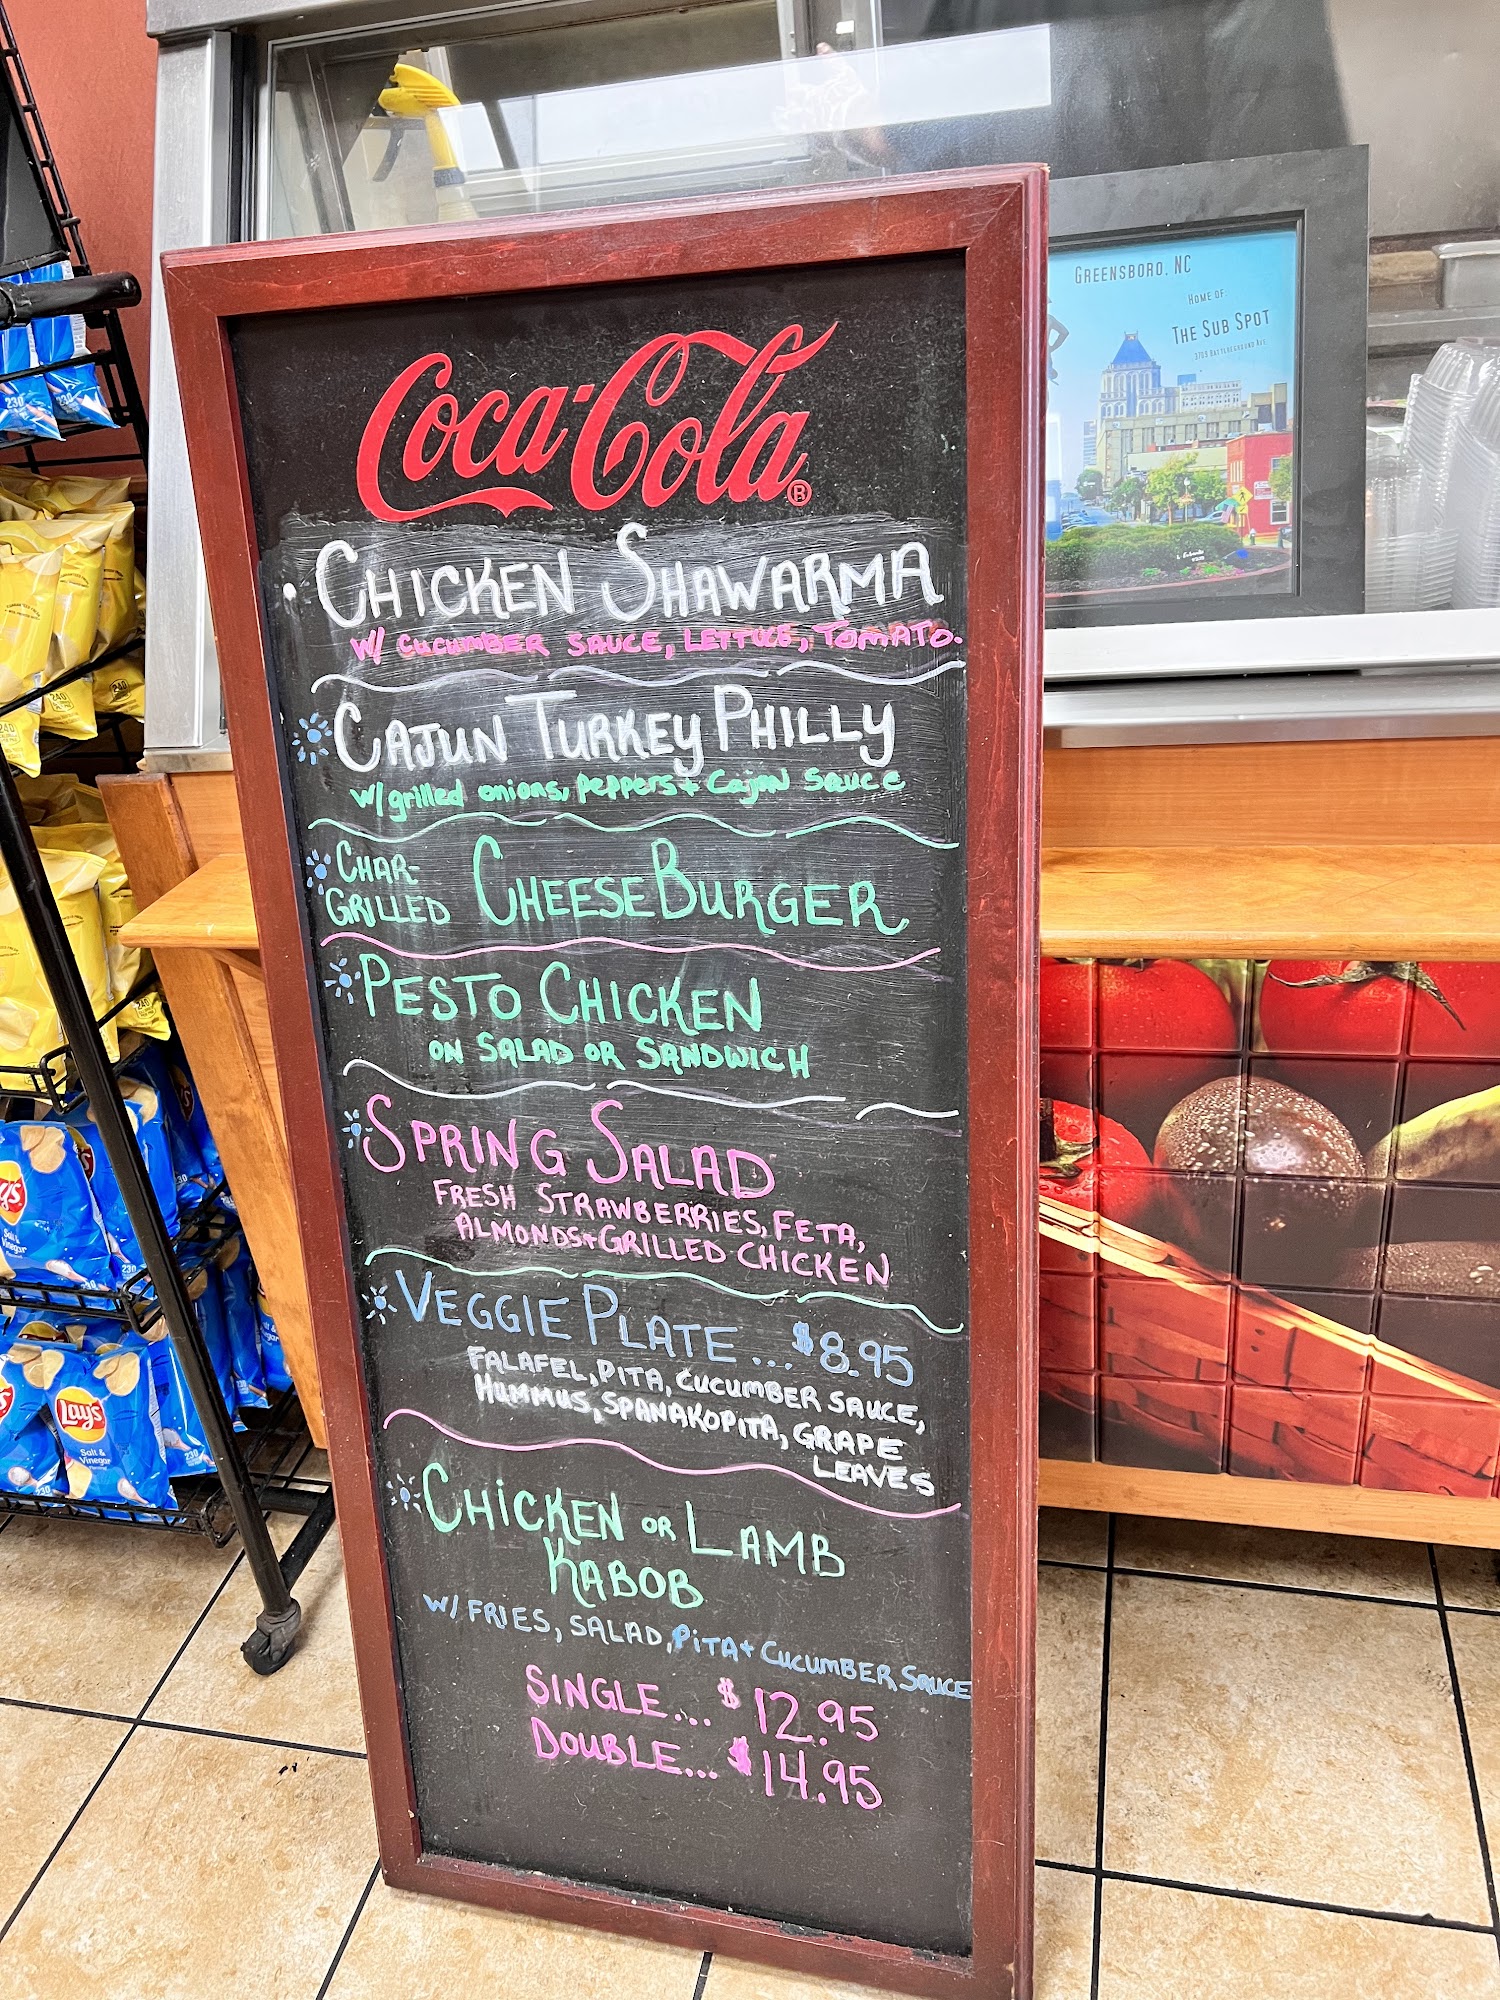 Coca-Cola®
CHICKEN SHAWARMA
W/ CUCUMBER SAUCE, LETTUCE, TOMATO.
CAJUN TURKEY PHILLY
w/ grilled onions, peppers + Cajun Sauce
CHAR-
GRILLED CHEESEBURGER
PESTO CHICKEN
ON SALAD OR SANDWICH
SPRING SALAD
FRESH STRAWBERRIES, FETA,
ALMONDS + GRILLED CHICKEN
VEGGIE PLATE ... $8.95
FALAFEL, PITA, CUCUMBER SAUCE,
HUMMUS, SPANAKOPITA, GRAPE
LEAVES
CHICKEN OR LAMB
KABOB
W/ FRIES, SALAD, PITA + CUCUMBER SAUCE
SINGLE... $12.95
DOUBLE... $14.95
GREENSBORO, NC
HOME OF
THE SUB SPOT
3709 BATTLEGROUND AVE
230
240
240
240
Lay's
Salt &
Vinegar
230
Lay's
Salt &
Vinegar
230